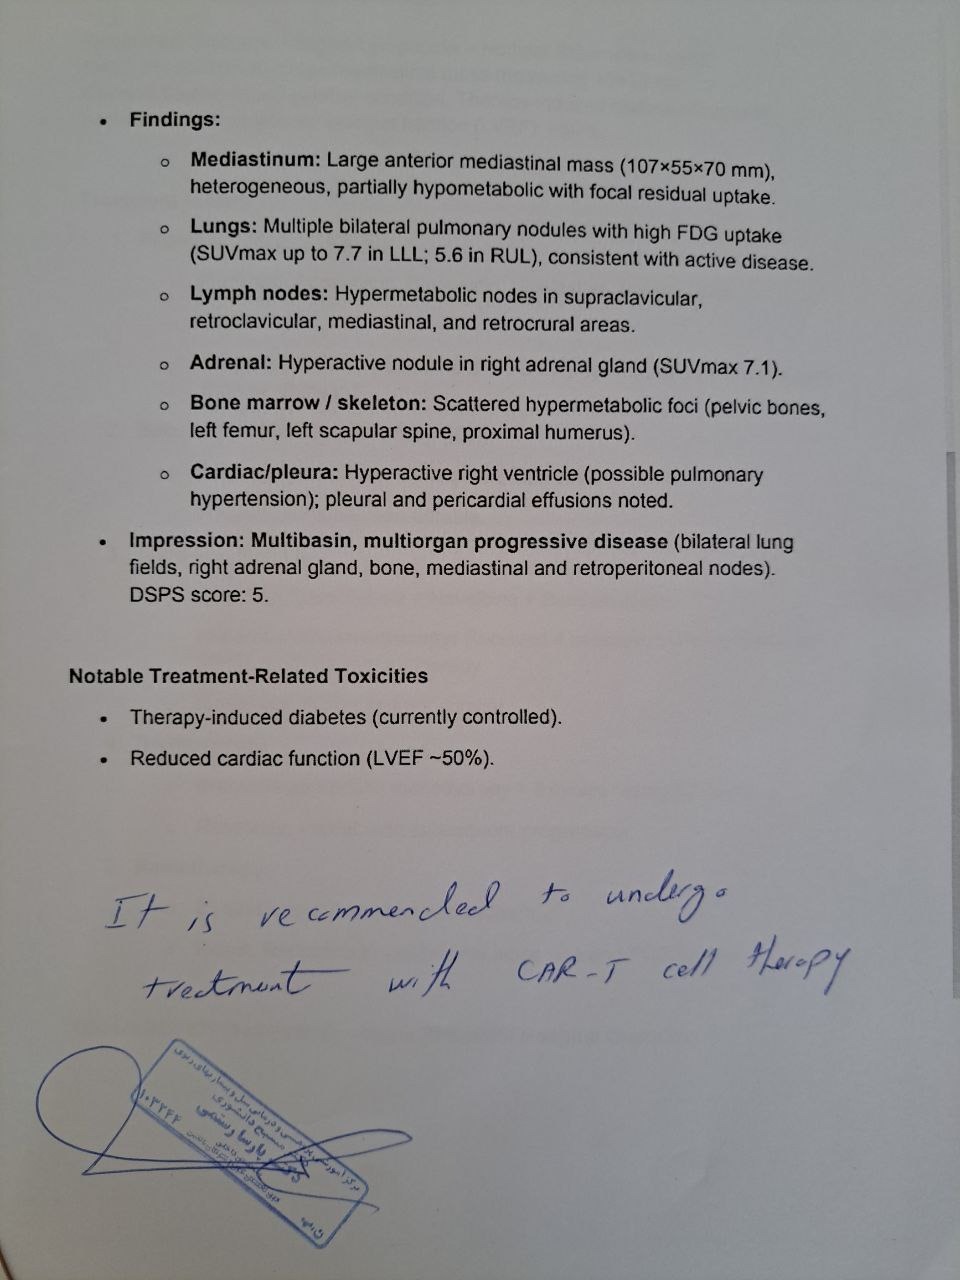 • Findings:
o Mediastinum: Large anterior mediastinal mass (107×55×70 mm),
heterogeneous, partially hypometabolic with focal residual uptake.
o Lungs: Multiple bilateral pulmonary nodules with high FDG uptake
(SUVmax up to 7.7 in LLL; 5.6 in RUL), consistent with active disease.
o Lymph nodes: Hypermetabolic nodes in supraclavicular,
retroclavicular, mediastinal, and retrocrural areas.
o Adrenal: Hyperactive nodule in right adrenal gland (SUVmax 7.1).
o Bone marrow / skeleton: Scattered hypermetabolic foci (pelvic bones,
left femur, left scapular spine, proximal humerus).
o Cardiac/pleura: Hyperactive right ventricle (possible pulmonary
hypertension); pleural and pericardial effusions noted.
• Impression: Multibasin, multiorgan progressive disease (bilateral lung
fields, right adrenal gland, bone, mediastinal and retroperitoneal nodes).
DSPS score: 5.
Notable Treatment-Related Toxicities
• Therapy-induced diabetes (currently controlled).
• Reduced cardiac function (LVEF ~50%).
It is recommended to undergo
treatment with CAR-T cell therapy
مسیح دانشوری